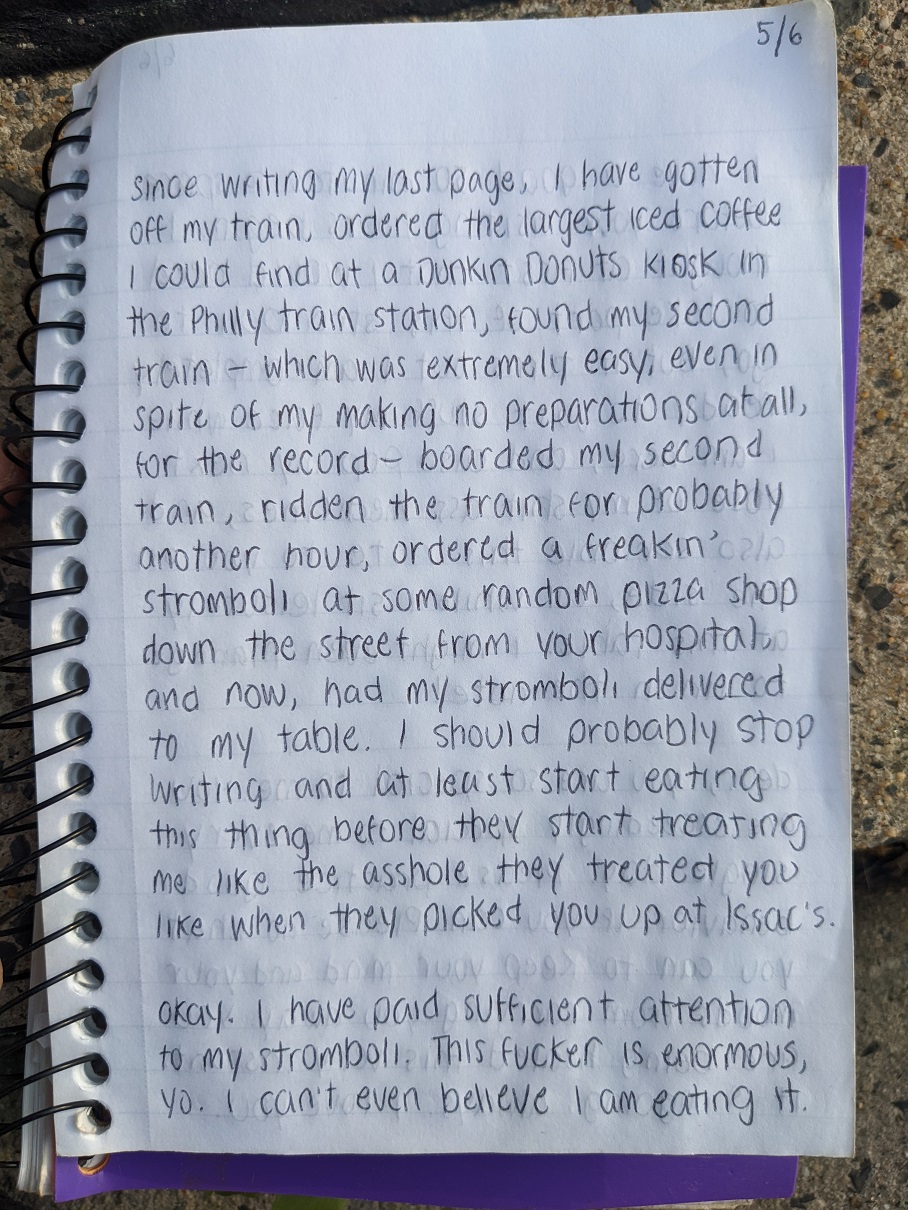 5/6
since writing my last page, I have gotten
off my train, ordered the largest iced coffee
I could find at a Dunkin Donuts kiosk in
the Philly train station, found my second
train – which was extremely easy, even in
spite of my making no preparations at all,
for the record – boarded my second
train, ridden the train for probably
another hour, ordered a freakin'
stromboli at some random pizza shop
down the street from your hospital,
and now, had my stromboli delivered
to my table. I should probably stop
writing and at least start eating
this thing before they start treating
me like the asshole they treated you
like when they picked you up at Issac's.
okay. I have paid sufficient attention
to my stromboli. This fucker is enormous,
yo. I can't even believe I am eating it.